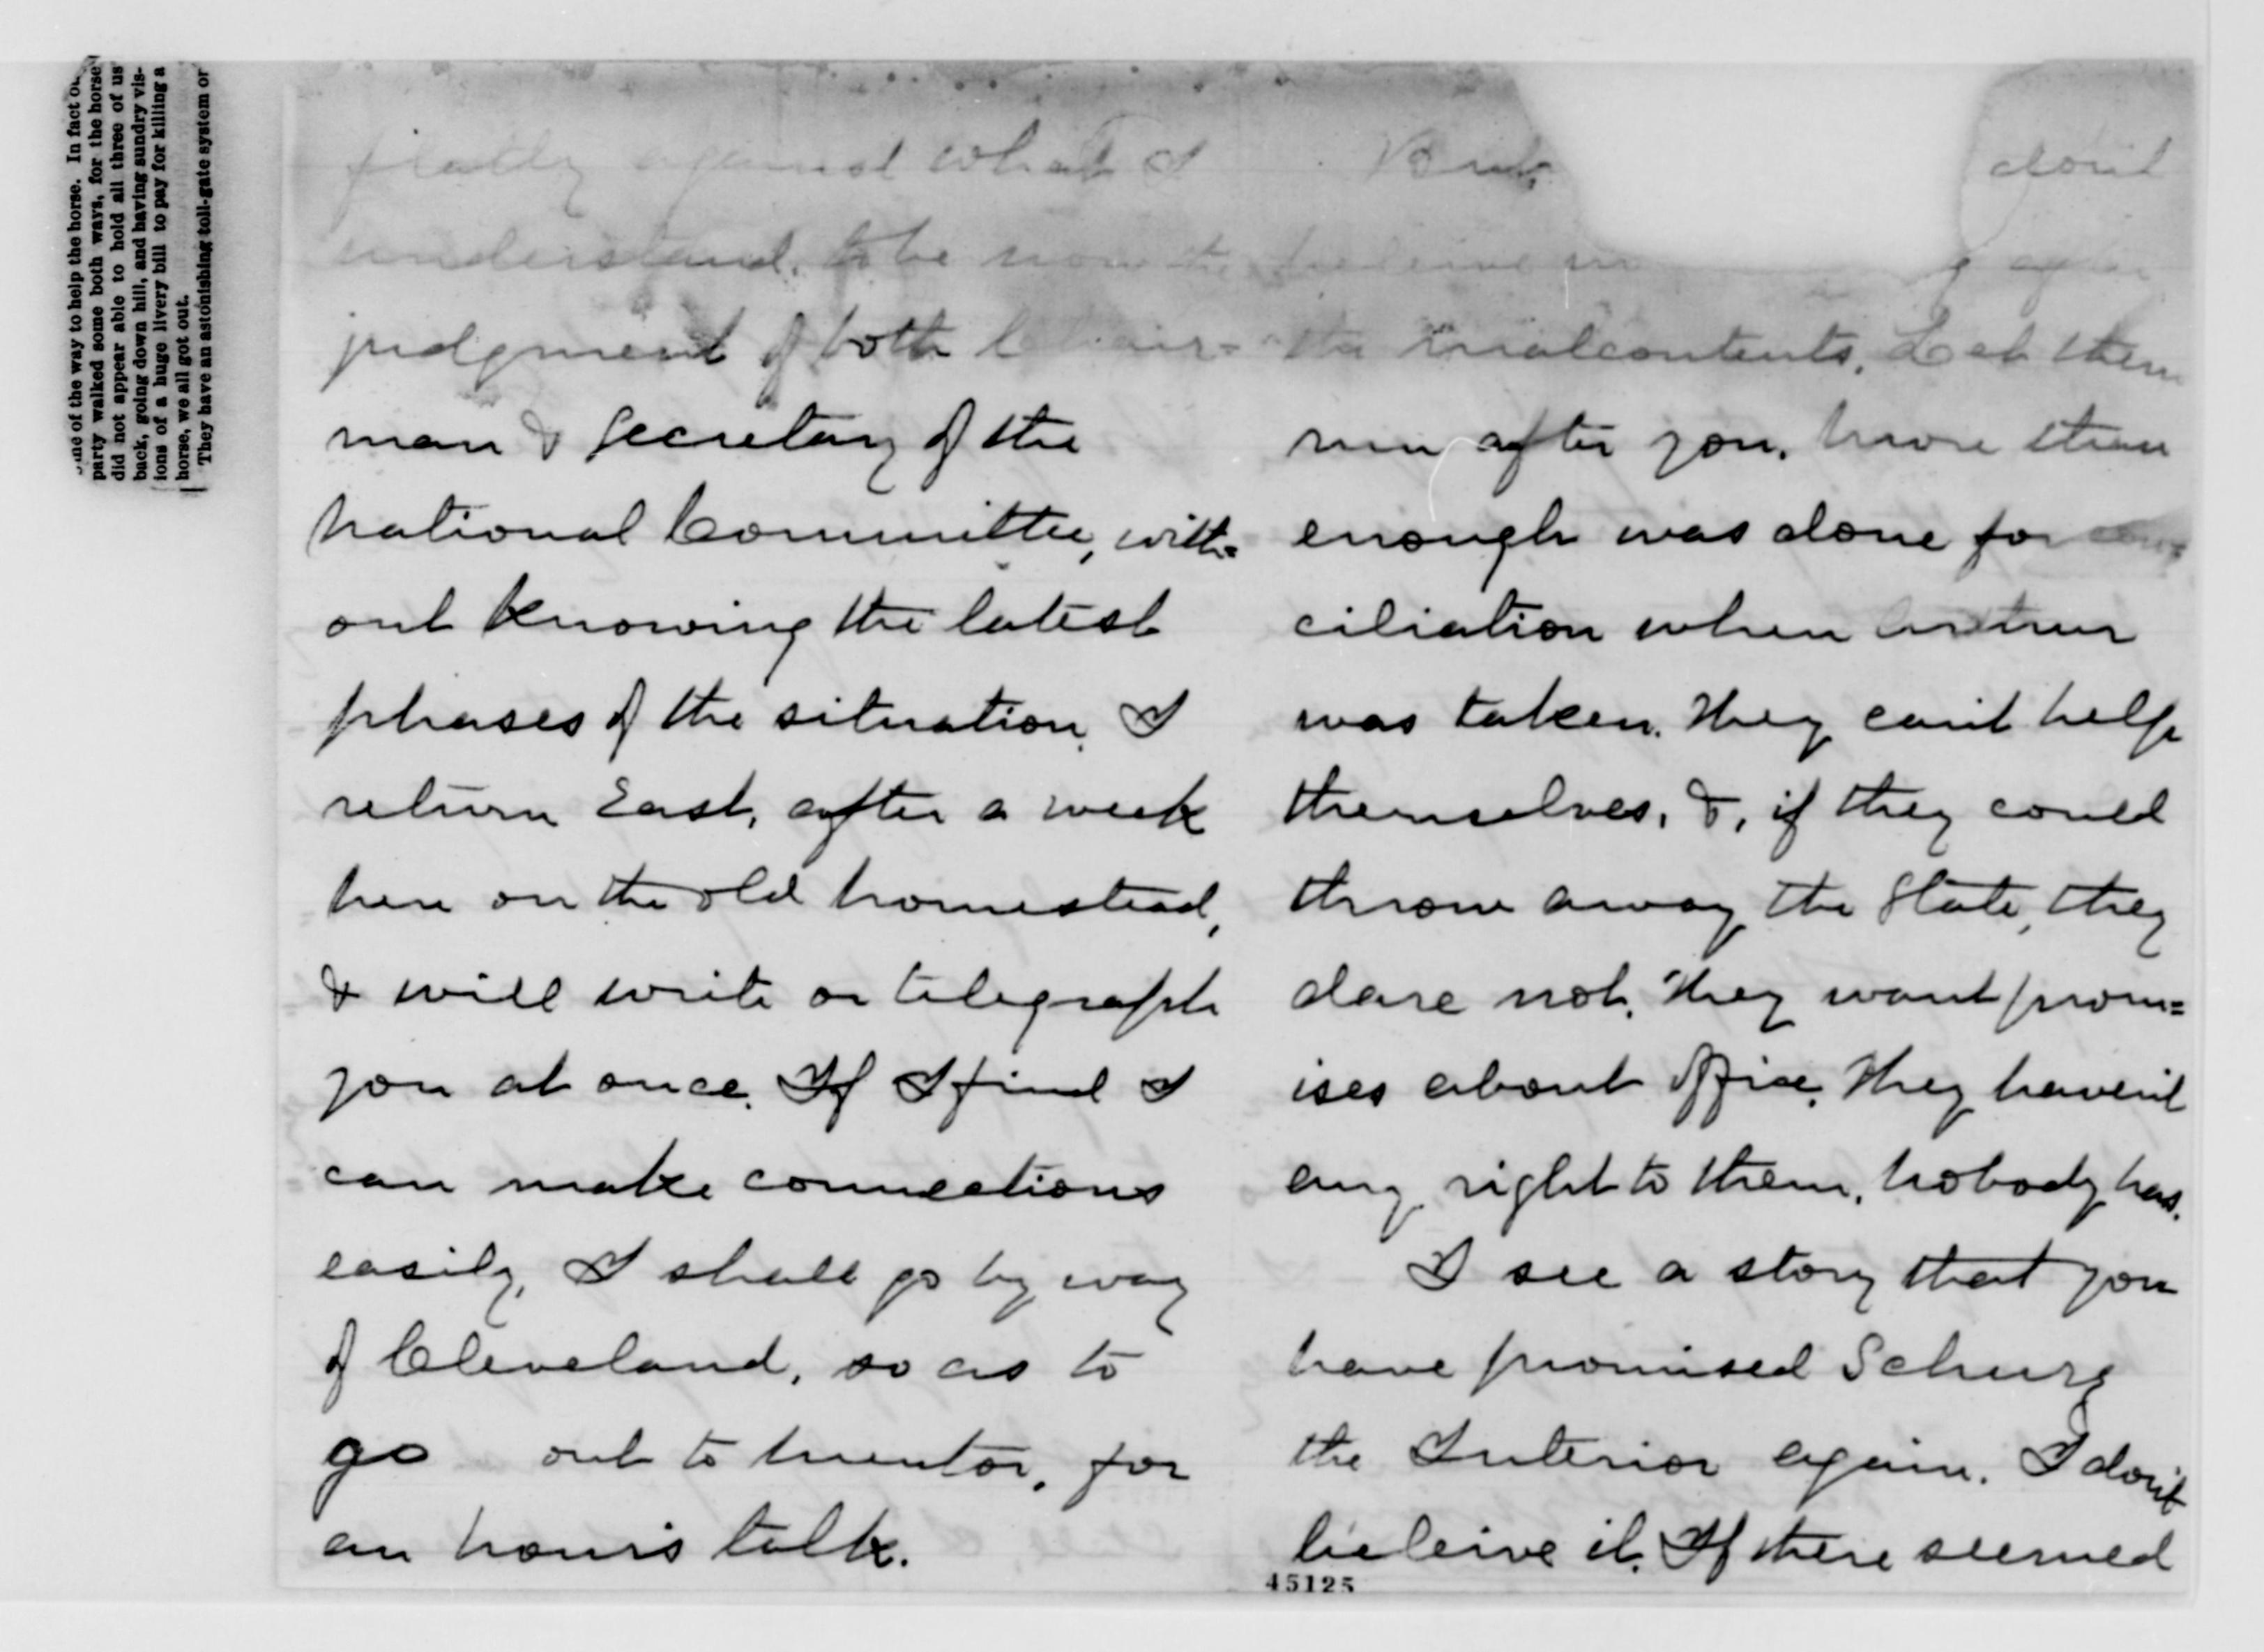 ome of the way to help the horse. In fact
party walked some both ways, for the horse
did not appear able to hold all three of us
back, going down hill, and having sundry vis-
ions of a huge livery bill to pay for killing a
horse, we all got out.
They have an astonishing toll-gate system or
flatly against what I
understand, to be now the
judgment of both Chair-
man & Secretary of the
National Committee, with-
out knowing the latest
phases of the situation. I
return East, after a week
here on the old homestead,
& will write or telegraph
you at once. If I find I
can make connections
easily, I shall go by way
of Cleveland, so as to
go out to Mentor, for
an hour's talk.
But, don't
beleive in after
the malcontents. Let them
run after you. More than
enough was done for con
ciliation when Arthur
was taken. They can't help
themselves, &, if they could
throw away the State, they
dare not. They want prom=
ises about office. They haven't
any right to them. Nobody has.
I see a story that you
have promised Schurz
the Interior again. I don't
beleive it. If there seemed
45125